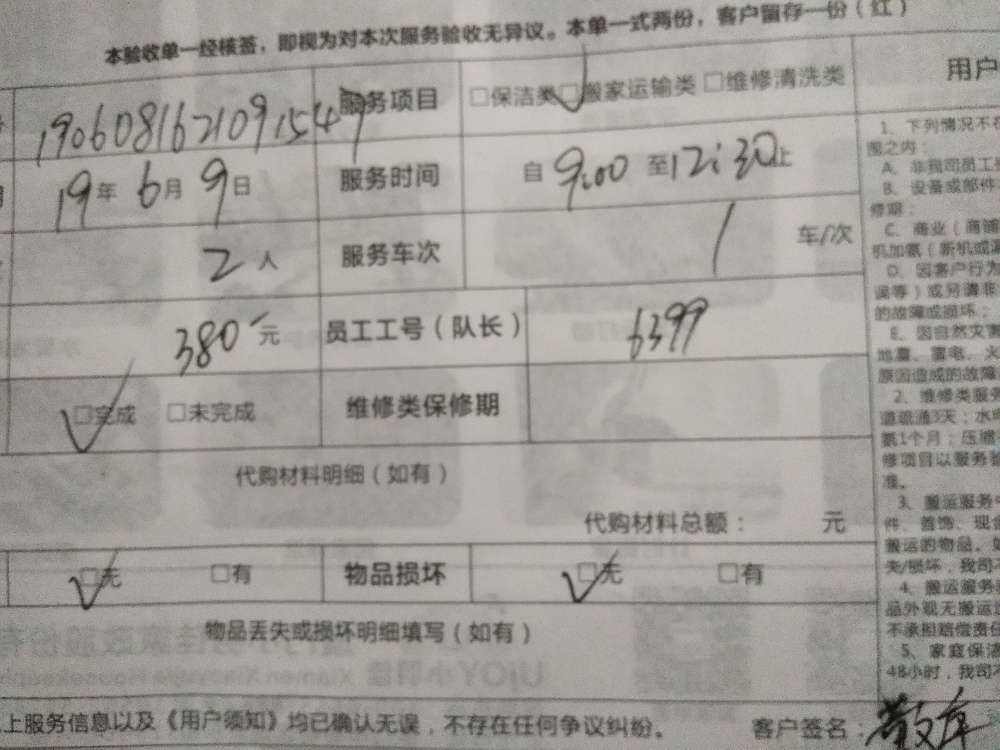 本验收单一经核签，即视为对本次服务验收无异议。本单一式两份，客户留存一份（红）
1906081621091547 服务项目 □保洁类 ☑搬家运输类 □维修清洗类 用户
19年6月9日 服务时间 自9:00至12:30止
2人 服务车次 1 车/次
380元 员工工号（队长） 6399
☑完成 □未完成 维修类保修期
代购材料明细（如有）
代购材料总额： 元
☑无 □有 物品损坏 ☑无 □有
物品丢失或损坏明细填写（如有）
上服务信息以及《用户须知》均已确认无误，不存在任何争议纠纷。 客户签名：
1、下列情况不在
围之内：
A、非我司员工
B、设备或部件
修期；
C、商业（商铺
机加氨（新机或
D、因客户行为
误等）或另请非
的故障或损坏；
E、因自然灾害
地震、雷电、火
原因造成的故障
2、维修类服务
道疏通3天；水
氨1个月；压缩
修项目以服务验
准。
3、搬运服务
件、首饰、现
搬运的物品。如
失/损坏，我司不
4、搬运服务
品外观无搬运
不承担赔偿责任
5、家庭保洁
48小时，我司不